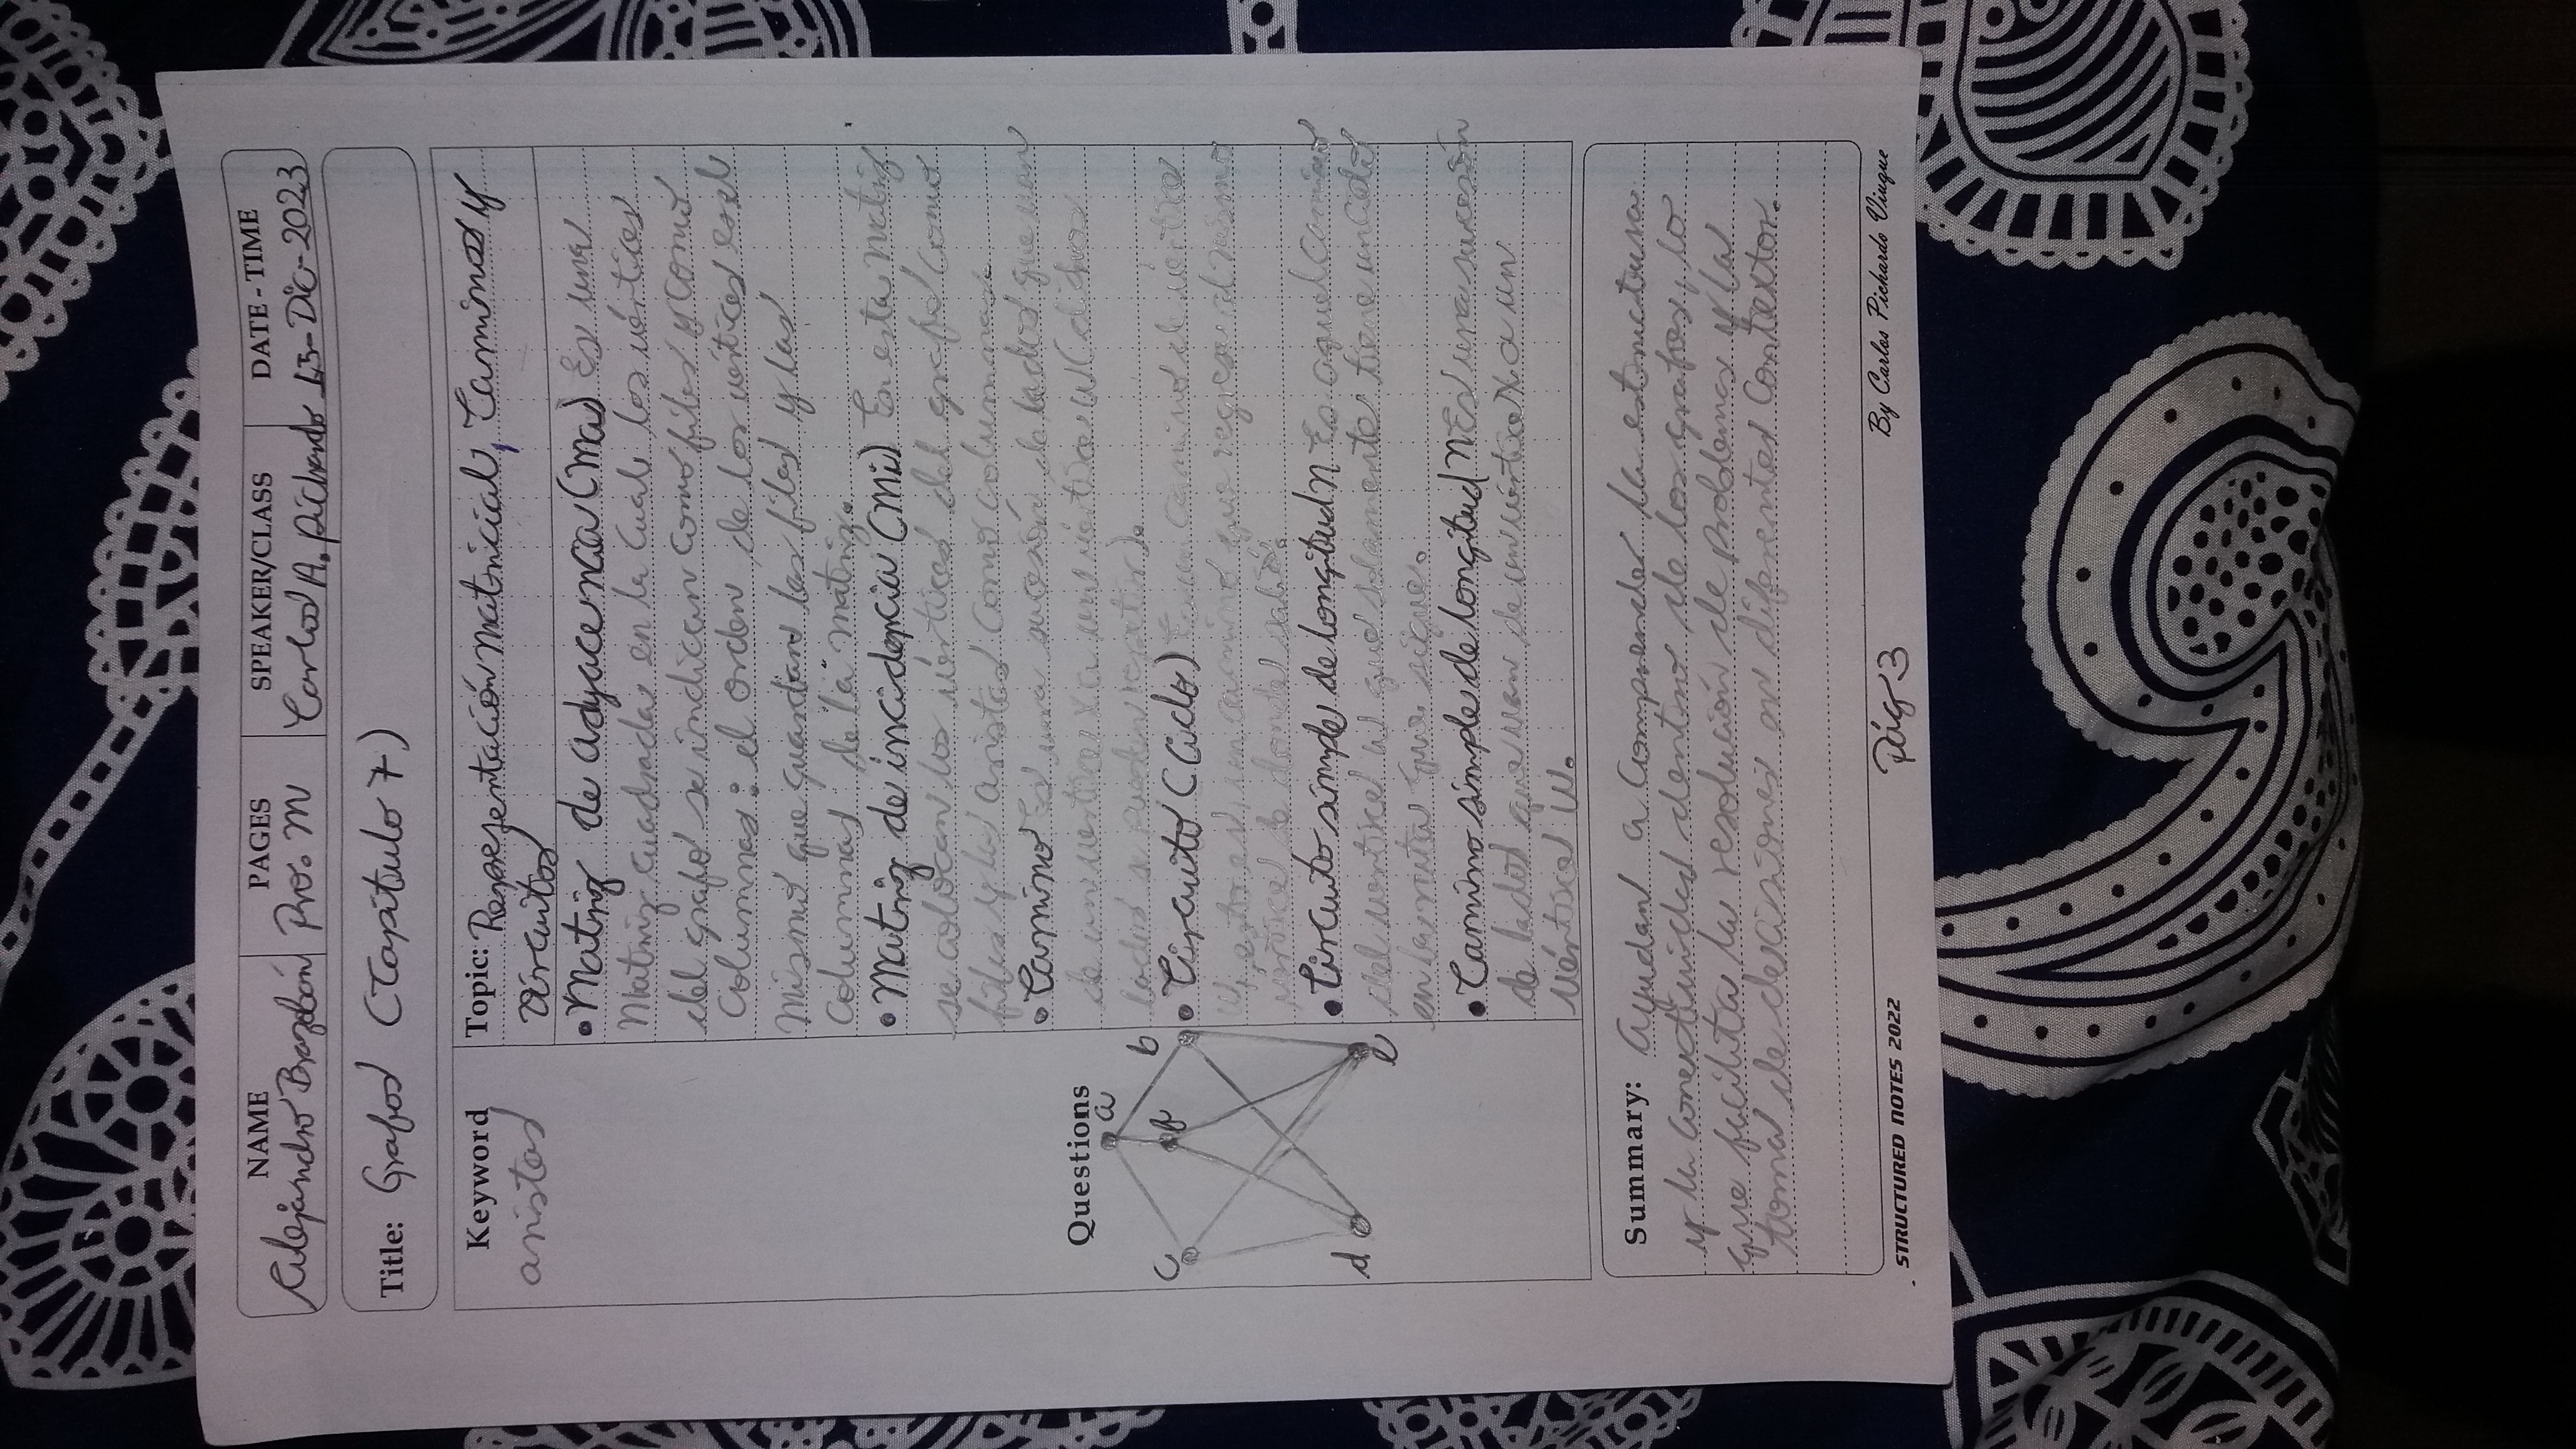 NAME
PAGES
SPEAKER/CLASS
DATE - TIME
Alejandro Brazobán
Pro. M
Carlos A. Pichardo
15-Dic-2023
Title: Grafos (Capítulo 7)
Keyword
aristas
Topic: Representación matricial, Caminos y
Circuitos
•Matriz de adyacencia (Ma) Es una
Matriz cuadrada en la cual los vértices
del grafo se indican como filas y como
Columnas: el orden de los vértices es el
mismo que guardan las filas y las
Columnas de la matriz.
•Matriz de incidencia (Mi) En esta matriz
se colocan los vértices del grafo como
filas y las aristas como columnas.
•Camino Es una sucesión de lados que van
de un vértice x a un vértice w (dichos
lados se pueden repetir).
•Circuito (Ciclo) Es un camino del vértice
w, esto es, un camino que regresa al mismo
vértice de donde salió.
•Circuito simple de longitud n Es aquel camino
del vértice w que solamente tiene un ciclo
en la ruta que sigue.
•Camino simple de longitud n Es una sucesión
de lados que van de un vértice x a un
vértice w.
Questions
a
b
c
f
d
e
Summary: ayudan a comprender la estructura
y la conectividad dentro de los grafos, lo
que facilita la resolución de problemas y la
toma de decisiones en diferentes contextos.
STRUCTURED NOTES 2022
Pág 3
By Carlos Pichardo Viuque